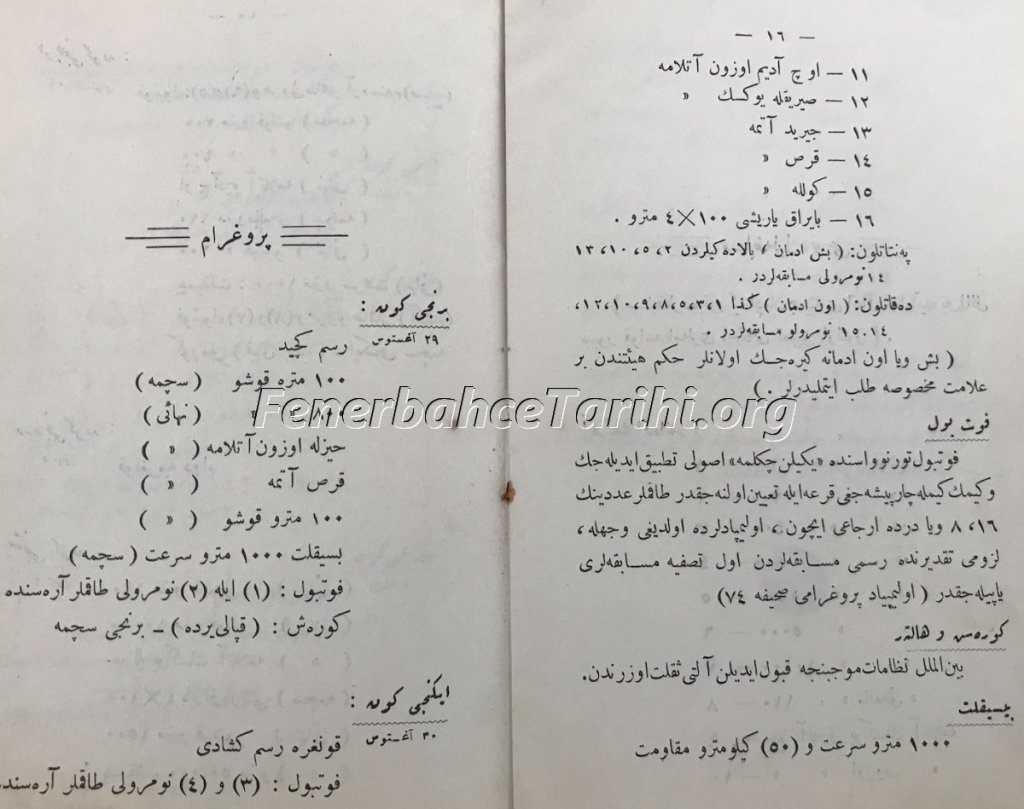 — ١٦ —
١١ — اوچ آديم اوزون آتلامه
١٢ — صيريقله يوكسك »
١٣ — جيريد آتمه
١٤ — قرص »
١٥ — كولله »
١٦ — بايراق ياريشى ١٠٠×٤ مترو .
په‌نتاتلون: ( بش ادمان ) بالاده‌كيلردن ٢، ٥، ١٠، ١٣
١٤ نومرولى مسابقه‌لردر .
ده‌قاتلون: ( اون ادمان ) كذا ١،٣،٥،٨،٩،١٠،١٢،
١٥،١٤ نومرولو مسابقه‌لردر .
( بش ويا اون ادمانه كيره‌جك اولانلر حكم هيئتندن بر
علامت مخصوصه طلب ايتمليدرلر . )
فوت بول
فوتبول تورنوواسنده «يكيلن چكلمه» اصولى تطبيق ايديله‌جك
وكيمك كيمله چارپيشه‌جغى قرعه ايله تعيين اولنه‌جقدر طاقملر عددينك
١٦، ٨ ويا درده ارجاعى ايچون ، اوليمپيادلرده اولديغى وجهله ،
لزومى تقديرنده رسمى مسابقه‌لردن اول تصفيه مسابقه‌لرى
ياپيله‌جقدر ( اوليمپياد پروغرامى صحيفه ٧٤ )
كوره‌ش و هالتر
بين‌الملل نظامات موجبنجه قبول ايديلن آلتى ثقلت اوزرندن.
بيسيقلت
١٠٠٠ مترو سرعت و (٥٠) كيلومترو مقاومت
پروغرام
برنجى كون :
٢٩ آغستوس
رسم كچيد
١٠٠ متره قوشو ( سچمه )
٨٠٠ » » ( نهائى )
حيزله اوزون آتلامه ( » )
قرص آتمه ( » )
١٠٠ مترو قوشو ( » )
بسيقلت ١٠٠٠ مترو سرعت ( سچمه )
فوتبول : (١) ايله (٢) نومرولى طاقملر آره‌سنده
كوره‌ش : ( قپالى يرده ) – برنجى سچمه
ايكنجى كون :
٣٠ آغستوس
قونغره رسم كشادى
فوتبول : (٣) و (٤) نومرولى طاقملر آره‌سنده
FenerbahceTarihi.org